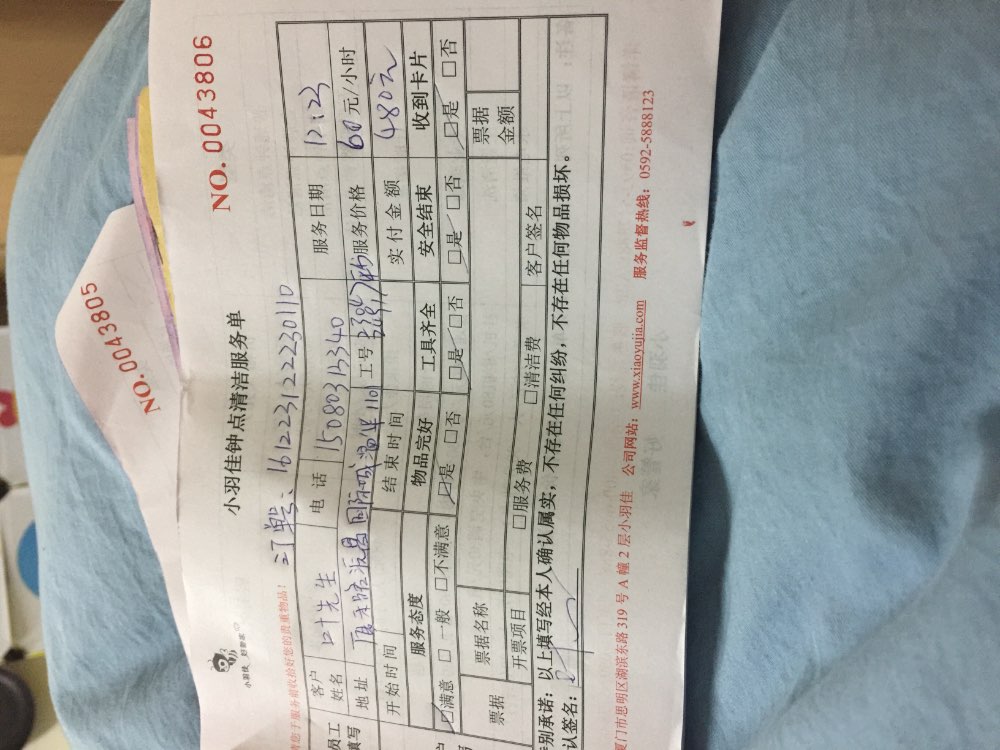 NO.0043805
NO.0043806
小羽佳钟点清洁服务单
小羽佳，好管家
请您于服务前收拾好您的贵重物品！
订单号：161223122230110
员工填写 客户姓名 叶先生 电话 15080313340 服务日期 12.23
地址 国际城温华110 工号 服务价格 60元/小时
开始时间 结束时间 实付金额 480元
服务态度 物品完好 工具齐全 安全结束 收到卡片
☑满意 □一般 □不满意 ☑是 □否 ☑是 □否 ☑是 □否 ☑是 □否
票据 票据名称 票据金额
开票项目 □服务费 □清洁费 客户签名
特别承诺：以上填写经本人确认属实，不存在任何纠纷，不存在任何物品损坏。
认签名：
厦门市思明区湖滨东路 319 号 A 幢 2 层小羽佳 公司网站：www.xiaoyujia.com 服务监督热线：0592-5888123